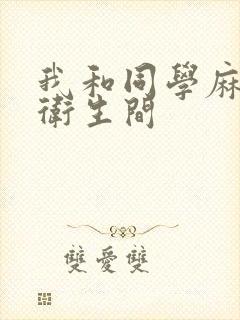 我和同學麻
衛生間
雙愛雙